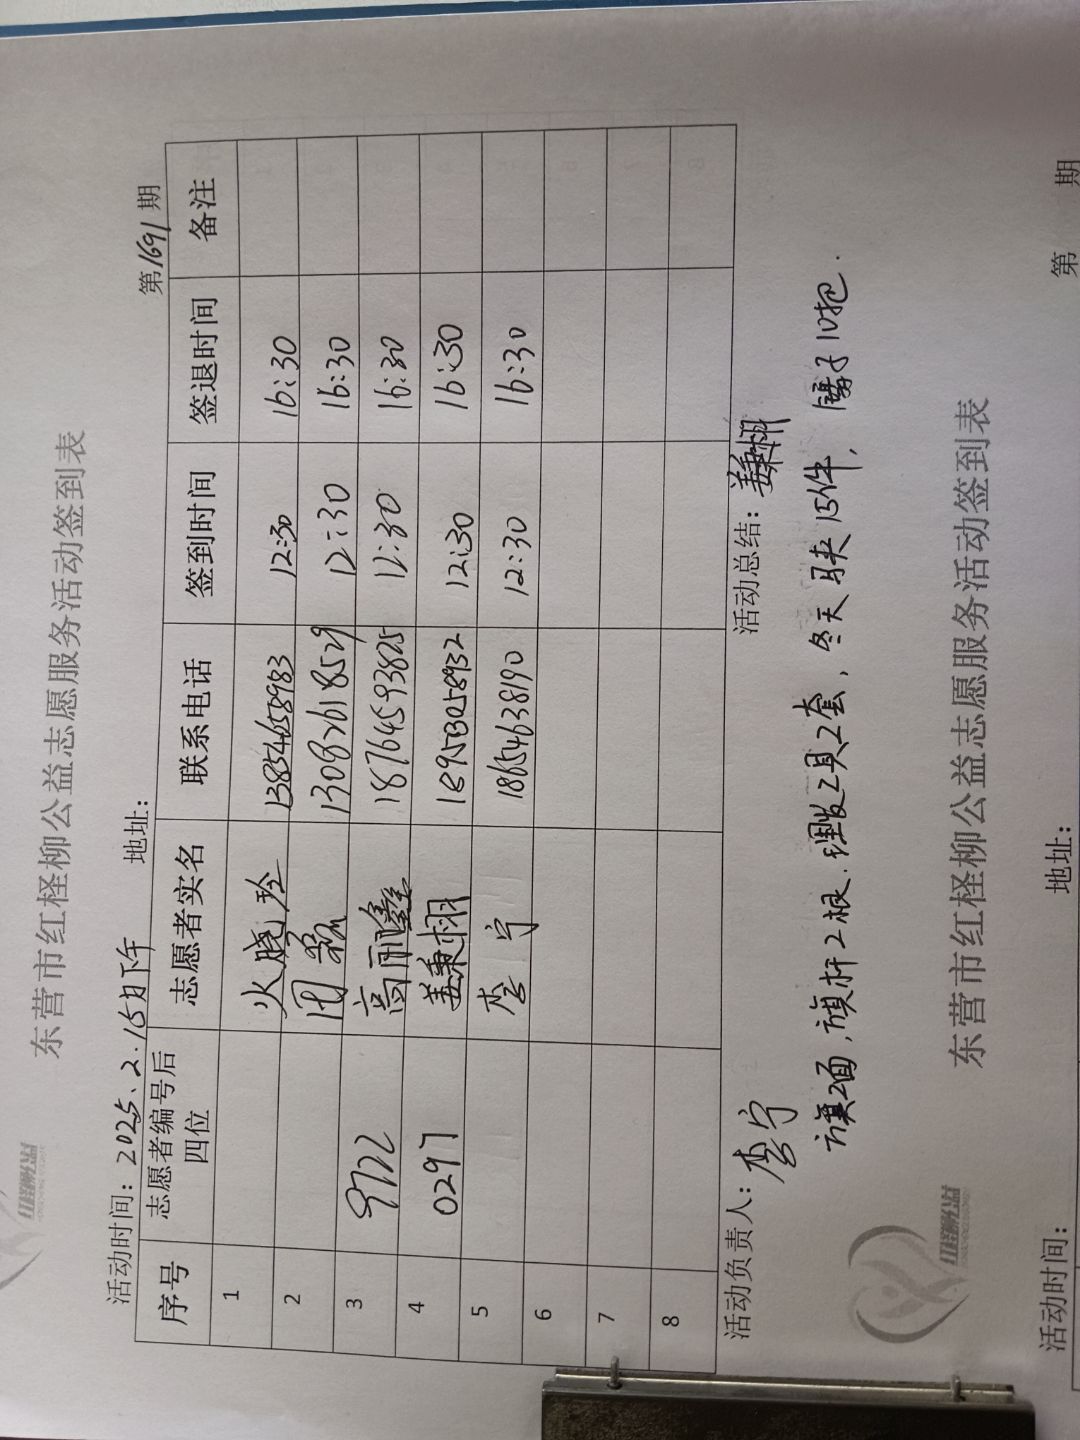 东营市红柽柳公益志愿服务活动签到表
活动时间：2025.2.16日下午 地址： 第1691期
序号 志愿者编号后四位 志愿者实名 联系电话 签到时间 签退时间 备注
1 火晓玲 13854658983 12:30 16:30
2 12:30 16:30
3 9722 高丽 18764593825 12:30 16:30
4 0297 姜秉栩 18953058932 12:30 16:30
5 李宁 18654638190 12:30 16:30
6
7
8
活动负责人：李宁 活动总结：姜秉栩
旗2面，旗杆2根，理发工具2套，冬天 15件， 子10把．
红柽柳公益
东营市红柽柳公益志愿服务活动签到表
活动时间： 地址： 第 期